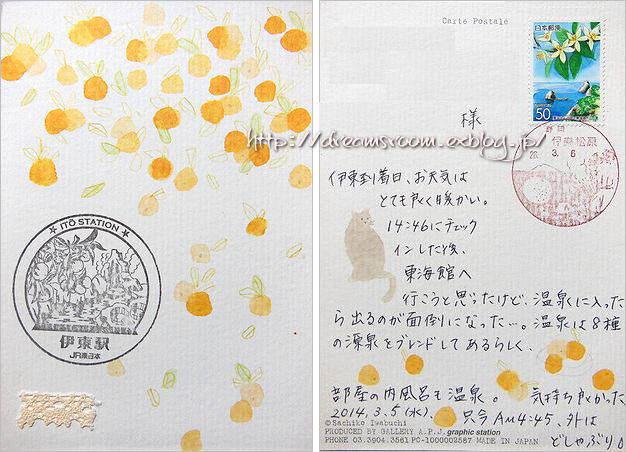 ITŌ STATION
伊東駅
JR東日本
Carte Postale
日本郵便
NIPPON
50
様
http://dreamsroom.exblog.jp/
静岡
伊東松原
26. 3. 6
伊東到着日、お天気は
とても良く暖かい。
14:46にチェック
インした後、
東海館へ
行こうと思ったけど、温泉に入った
ら出るのが面倒になった…。温泉は8種
の源泉をブレンドしてあるらしく、
部屋の内風呂も温泉。気持ち良かった
2014.3.5(水)、只今AM4:45、外は
どしゃぶり。
©Sachiko Iwabuchi
PRODUCED BY GALLERY A.P.J. graphic station
PHONE 03.3904.3561 PC-1000002587 MADE IN JAPAN